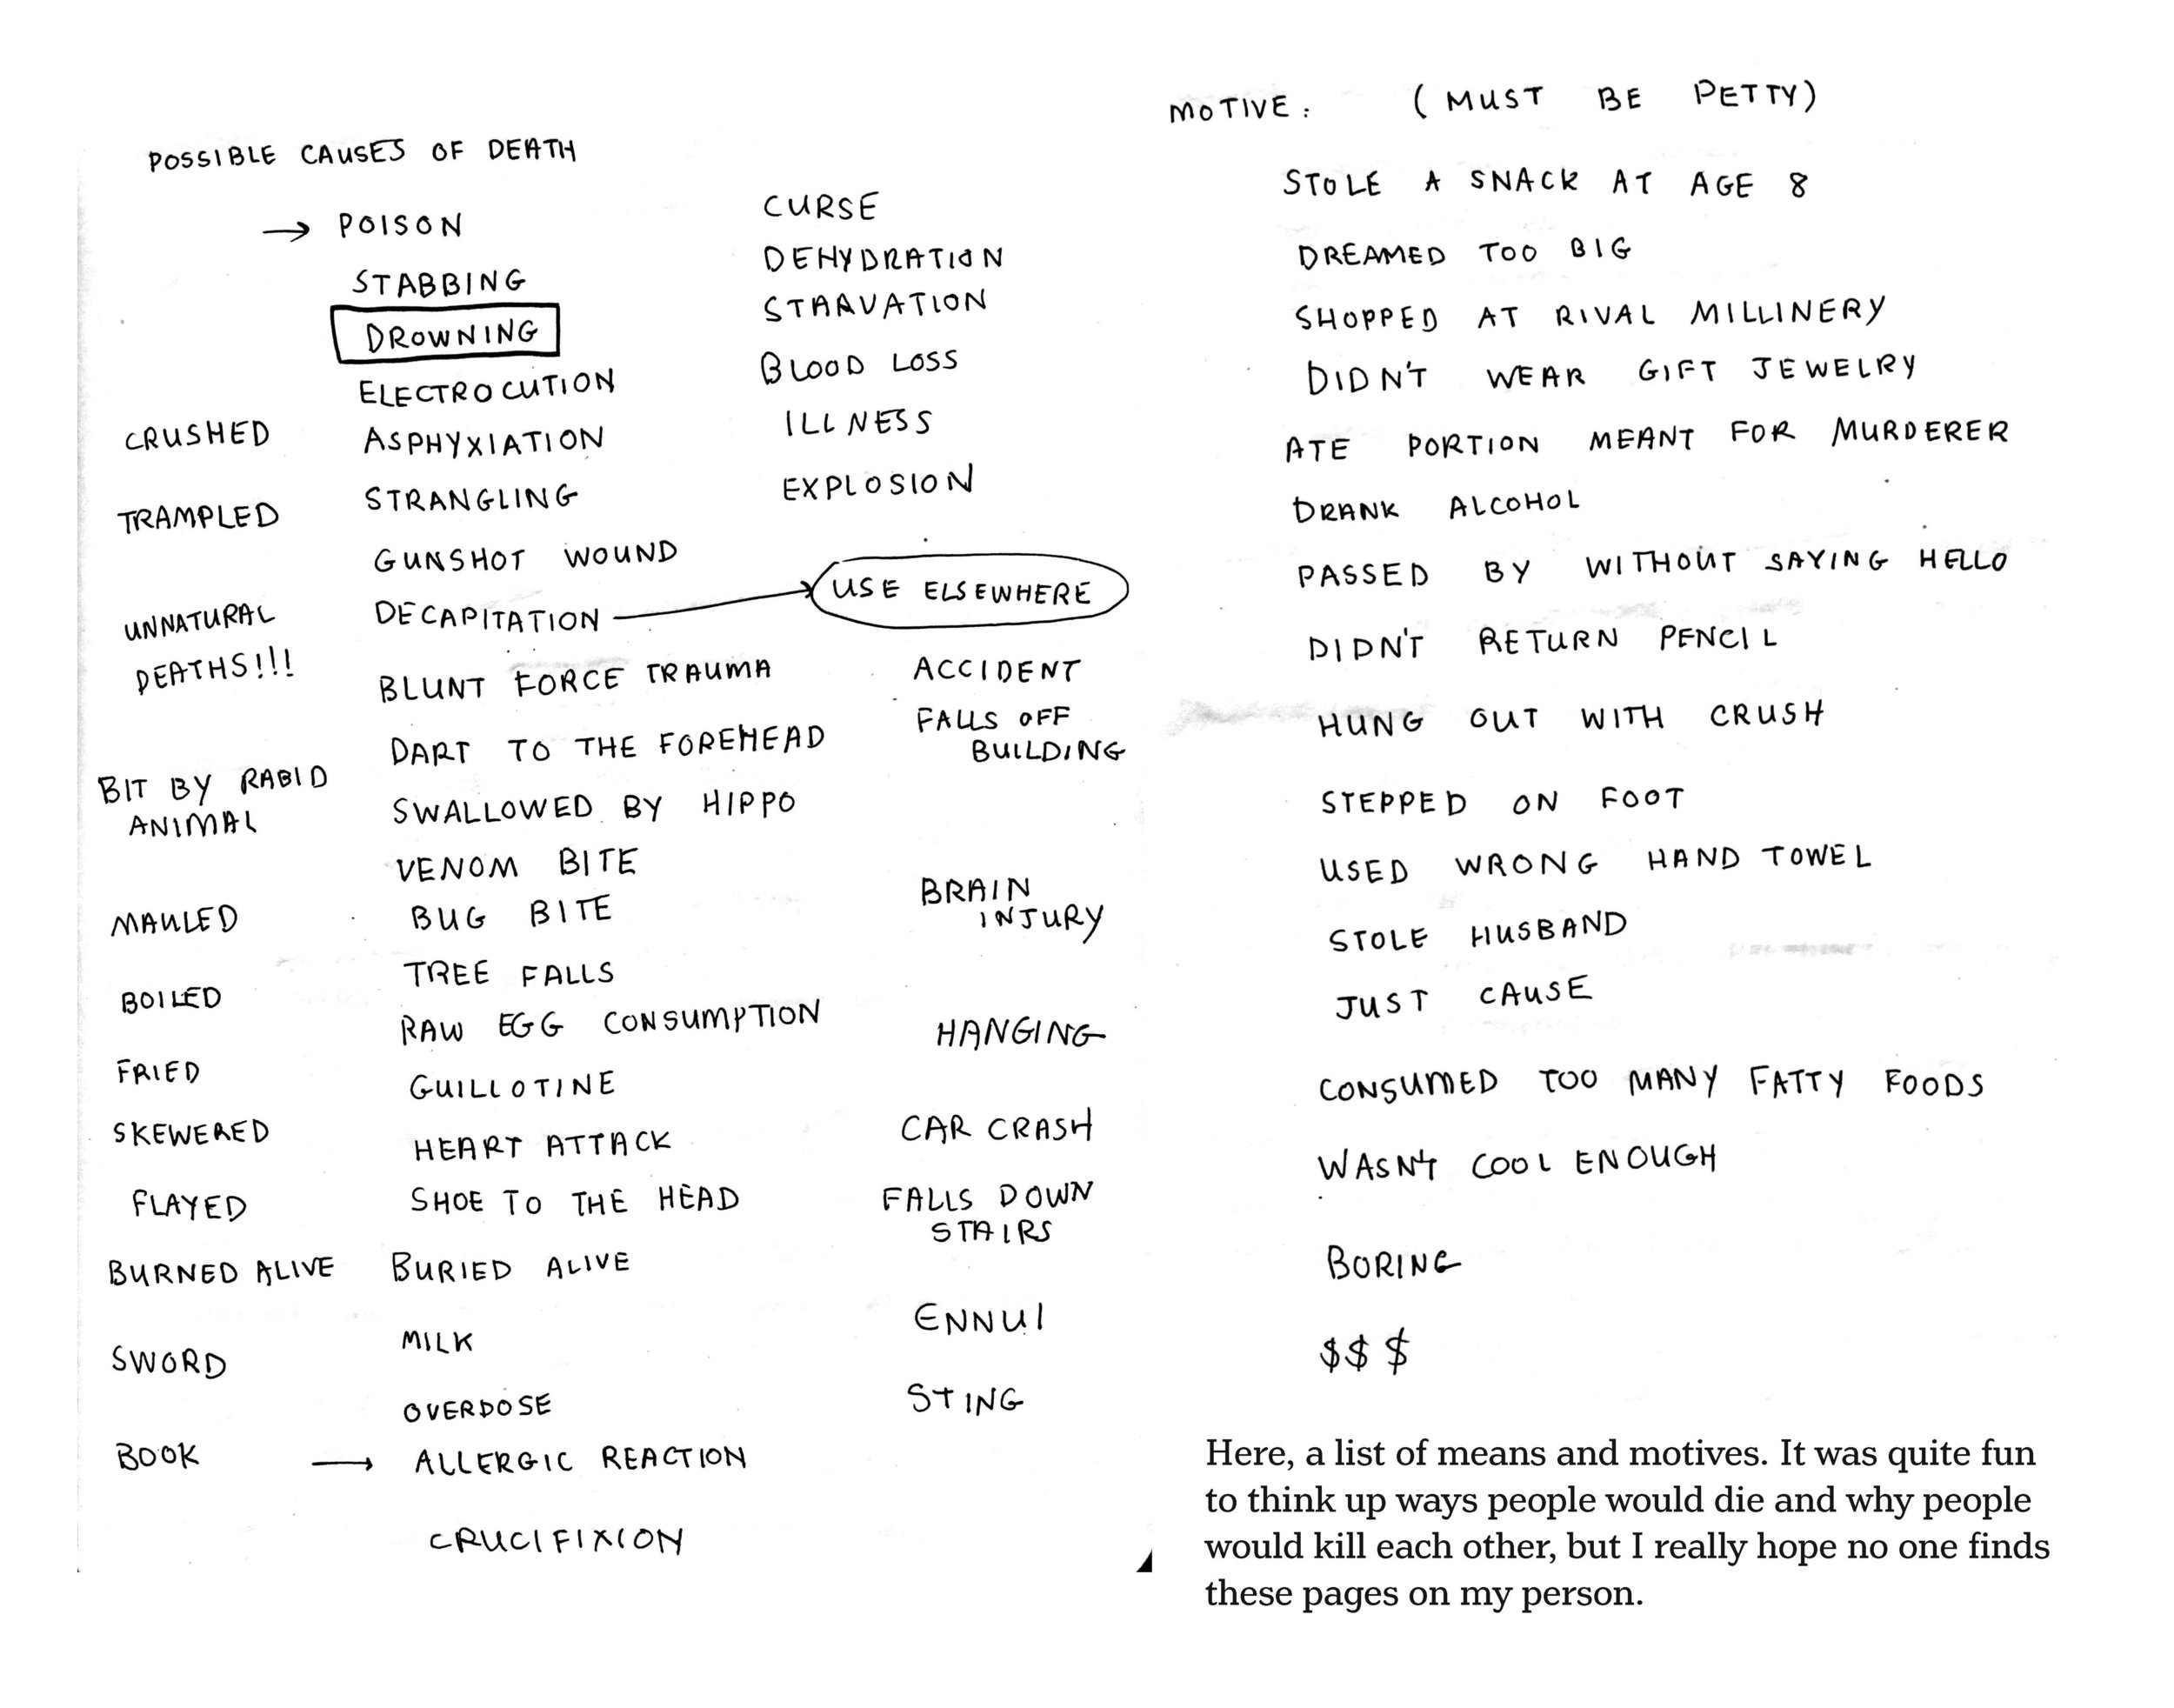 POSSIBLE CAUSES OF DEATH
→ POISON
STABBING
DROWNING
ELECTROCUTION
ASPHYXIATION
STRANGLING
GUNSHOT WOUND
DECAPITATION → USE ELSEWHERE
BLUNT FORCE TRAUMA
DART TO THE FOREHEAD
SWALLOWED BY HIPPO
VENOM BITE
BUG BITE
TREE FALLS
RAW EGG CONSUMPTION
GUILLOTINE
HEART ATTACK
SHOE TO THE HEAD
BURIED ALIVE
MILK
OVERDOSE
→ ALLERGIC REACTION
CRUCIFIXION
CRUSHED
TRAMPLED
UNNATURAL
DEATHS!!!
BIT BY RABID
ANIMAL
MAULED
BOILED
FRIED
SKEWERED
FLAYED
BURNED ALIVE
SWORD
BOOK
CURSE
DEHYDRATION
STARVATION
BLOOD LOSS
ILLNESS
EXPLOSION
ACCIDENT
FALLS OFF
BUILDING
BRAIN
INJURY
HANGING
CAR CRASH
FALLS DOWN
STAIRS
ENNUI
STING
MOTIVE: (MUST BE PETTY)
STOLE A SNACK AT AGE 8
DREAMED TOO BIG
SHOPPED AT RIVAL MILLINERY
DIDN'T WEAR GIFT JEWELRY
ATE PORTION MEANT FOR MURDERER
DRANK ALCOHOL
PASSED BY WITHOUT SAYING HELLO
DIDN'T RETURN PENCIL
HUNG OUT WITH CRUSH
STEPPED ON FOOT
USED WRONG HAND TOWEL
STOLE HUSBAND
JUST CAUSE
CONSUMED TOO MANY FATTY FOODS
WASN'T COOL ENOUGH
BORING
$$$
Here, a list of means and motives. It was quite fun
to think up ways people would die and why people
would kill each other, but I really hope no one finds
these pages on my person.